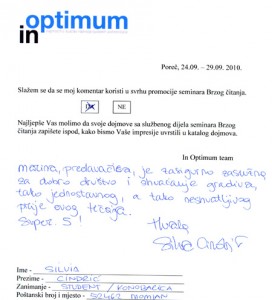 optimum
in
Poreč, 24.09. – 29.09. 2010.
Slažem se da se moj komentar koristi u svrhu promocije seminara Brzog čitanja.
DA NE
Najljepše Vas molimo da svoje dojmove sa službenog dijela seminara Brzog
čitanja zapišete ispod, kako bismo Vaše impresije uvrstili u katalog dojmova.
In Optimum team
predavačica, je zasigurno zaslužna
za dobro društvo i shvaćanje gradiva,
tako jednostavnog, a tako neshvatljivog
prije ovog tečaja.
Super 5!
Hvala
Silvia Cindrić
Ime - SILVIA
Prezime - CINDRIĆ
Zanimanje - STUDENT / KONOBARICA
Poštanski broj i mjesto - 52462 MOMJAN